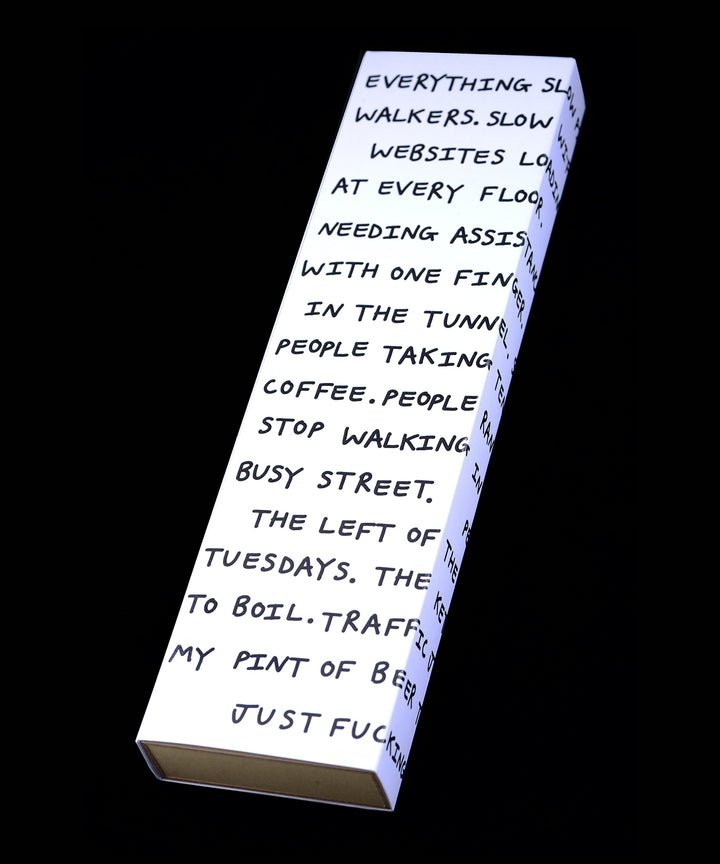 EVERYTHING SLOW
WALKERS. SLOW WIF
WEBSITES LOADIN
AT EVERY FLOOR.
NEEDING ASSISTANC
WITH ONE FINGER.
IN THE TUNNEL.
PEOPLE TAKING TE
COFFEE. PEOPLE RAN
STOP WALKING IN
BUSY STREET. PE
THE LEFT OF THE
TUESDAYS. THE KE
TO BOIL. TRAFFIC
MY PINT OF BEER
JUST FUCKING